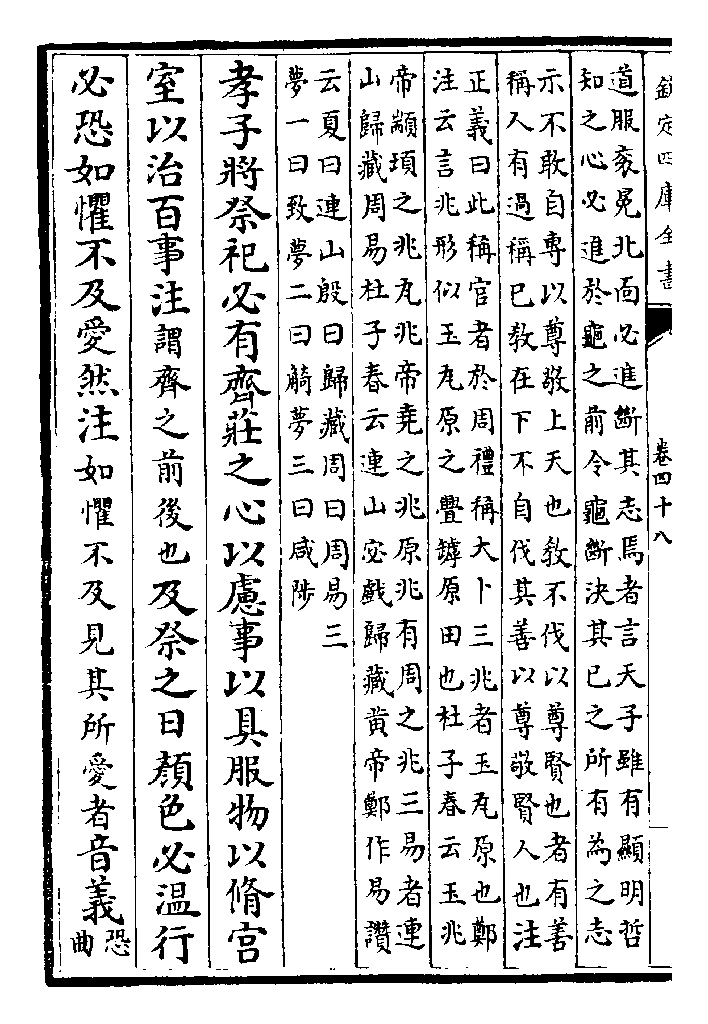 欽定四庫全書
卷四十八
道服衮冕北面必進斷其志焉者言天子雖有顯明哲
知之心必進於龜之前令龜斷決其已之所有為之志
示不敢自專以尊敬上天也教不伐以尊賢也者有善
稱人有過稱已教在下不自伐其善以尊敬賢人也注
正義曰此稱官者於周禮稱大卜三兆者玉瓦原也鄭
注云言兆形似玉瓦原之舋罅原田也杜子春云玉兆
帝顓頊之兆瓦兆帝堯之兆原兆有周之兆三易者連
山歸藏周易杜子春云連山宓戲歸藏黄帝鄭作易讚
云夏曰連山殷曰歸藏周曰周易三
夢一曰致夢二曰觭夢三曰咸陟
孝子將祭祀必有齊莊之心以慮事以具服物以脩宫
室以治百事注謂齊之前後也及祭之日顏色必温行
必恐如懼不及愛然注如懼不及見其所愛者音義恐
曲